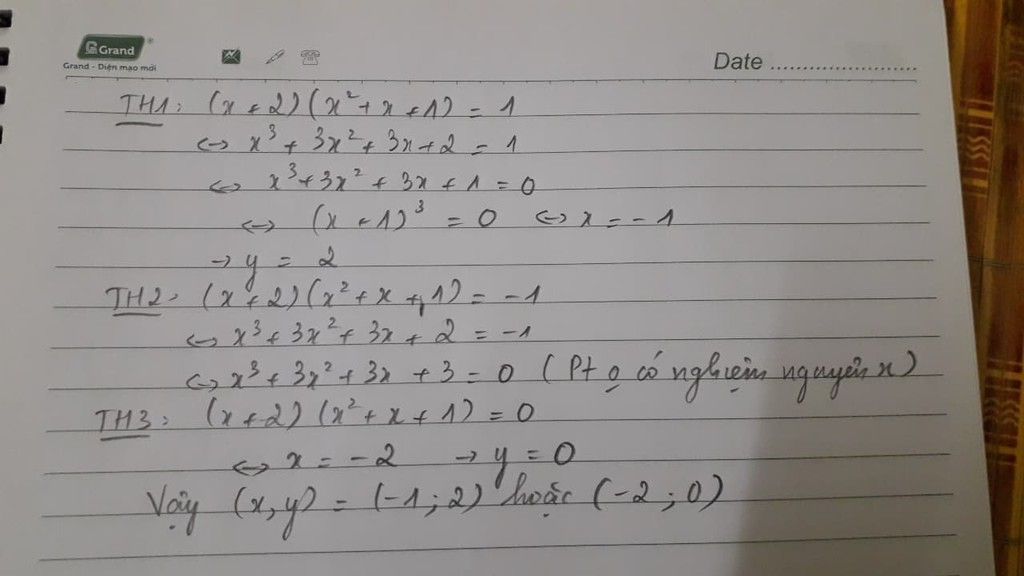 Grand
Grand - Diện mạo mới
Date ........................
TH1: (x + 2)(x² + x + 1) = 1
<-> x³ + 3x² + 3x + 2 = 1
<-> x³ + 3x² + 3x + 1 = 0
<-> (x + 1)³ = 0 <-> x = -1
-> y = 2
TH2: (x + 2)(x² + x + 1) = -1
<-> x³ + 3x² + 3x + 2 = -1
<-> x³ + 3x² + 3x + 3 = 0 (Pt o có nghiệm nguyên x)
TH3: (x + 2)(x² + x + 1) = 0
<-> x = -2 -> y = 0
Vậy (x, y) = (-1; 2) hoặc (-2; 0)